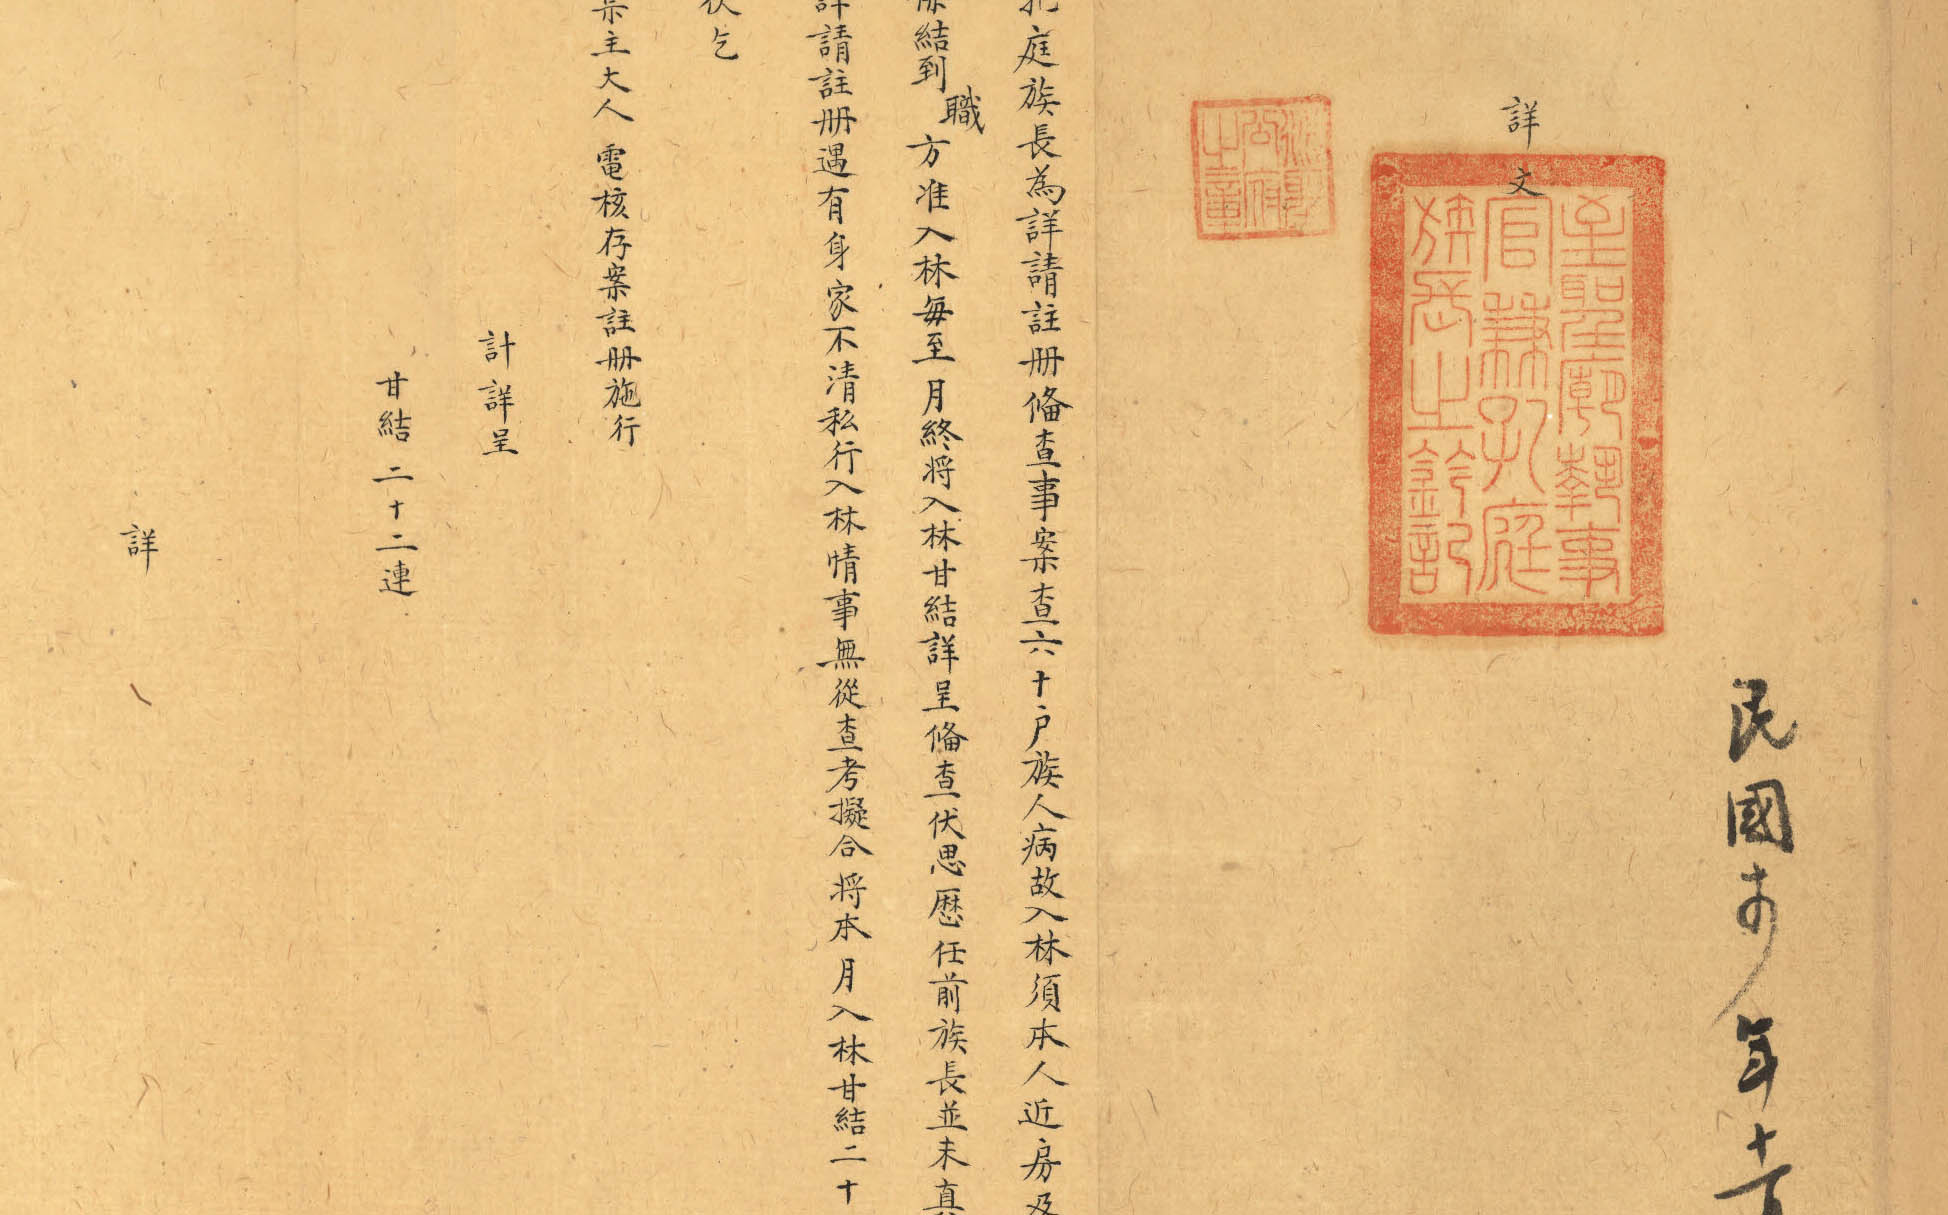 民國年十
詳文
至聖廟執事
官兼孔庭
族長之鈐記
衍聖
公府
之章
庭族長為詳請註册俻查事案查六十户族人病故入林須本人近房及
結到職方准入林每至月終将入林甘結詳呈俻查伏思歷任前族長並未
詳請註册遇有身家不清私行入林情事無從查考擬合将本月入林甘結二十
伏乞
宗主大人電核存案註册施行
計詳呈
甘結二十二連
詳